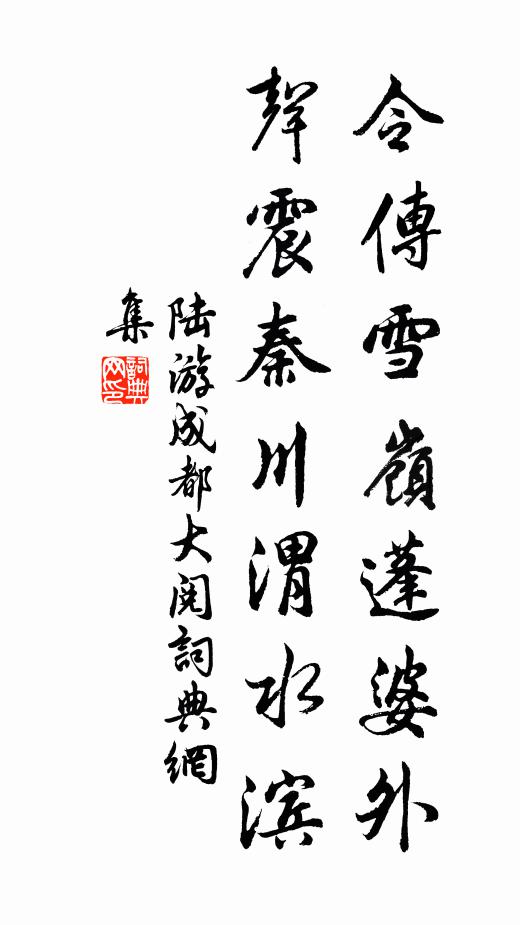 令傳雪嶺蓬婆外
聲震秦川渭水濱
陆游成都大阅詞典網
集
詞典
网印